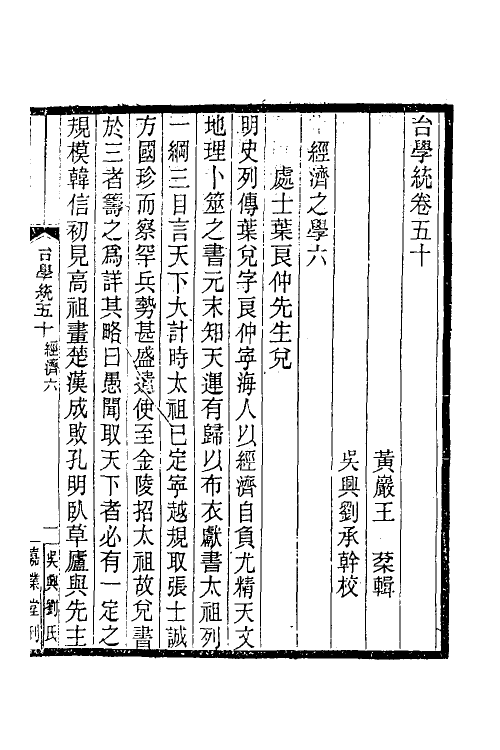 台學統卷五十
黃嚴王　棻輯
吳興劉承幹校
經濟之學六
處士葉良仲先生兌
明史列傳葉兌字良仲寧海人以經濟自負尤精天文
地理卜筮之書元末知天運有歸以布衣獻書太祖列
一綱三目言天下大計時太祖已定寧越規取張士誠
方國珍而察罕兵勢甚盛遣使至金陵招太祖故兌書
於三者籌之爲詳其略曰愚聞取天下者必有一定之
規模韓信初見高祖畫楚漢成敗孔明臥草廬與先主
台學統五十　經濟六
一
吳興劉氏
嘉業堂刊